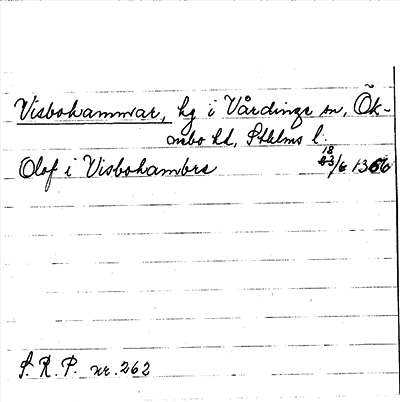 Visbohammar, hg i Vårdinge sn, Ök-
nebo hd, Sthlms l.
Olof i Visbohambrs 18/6 1366
S. R. P. nr. 262